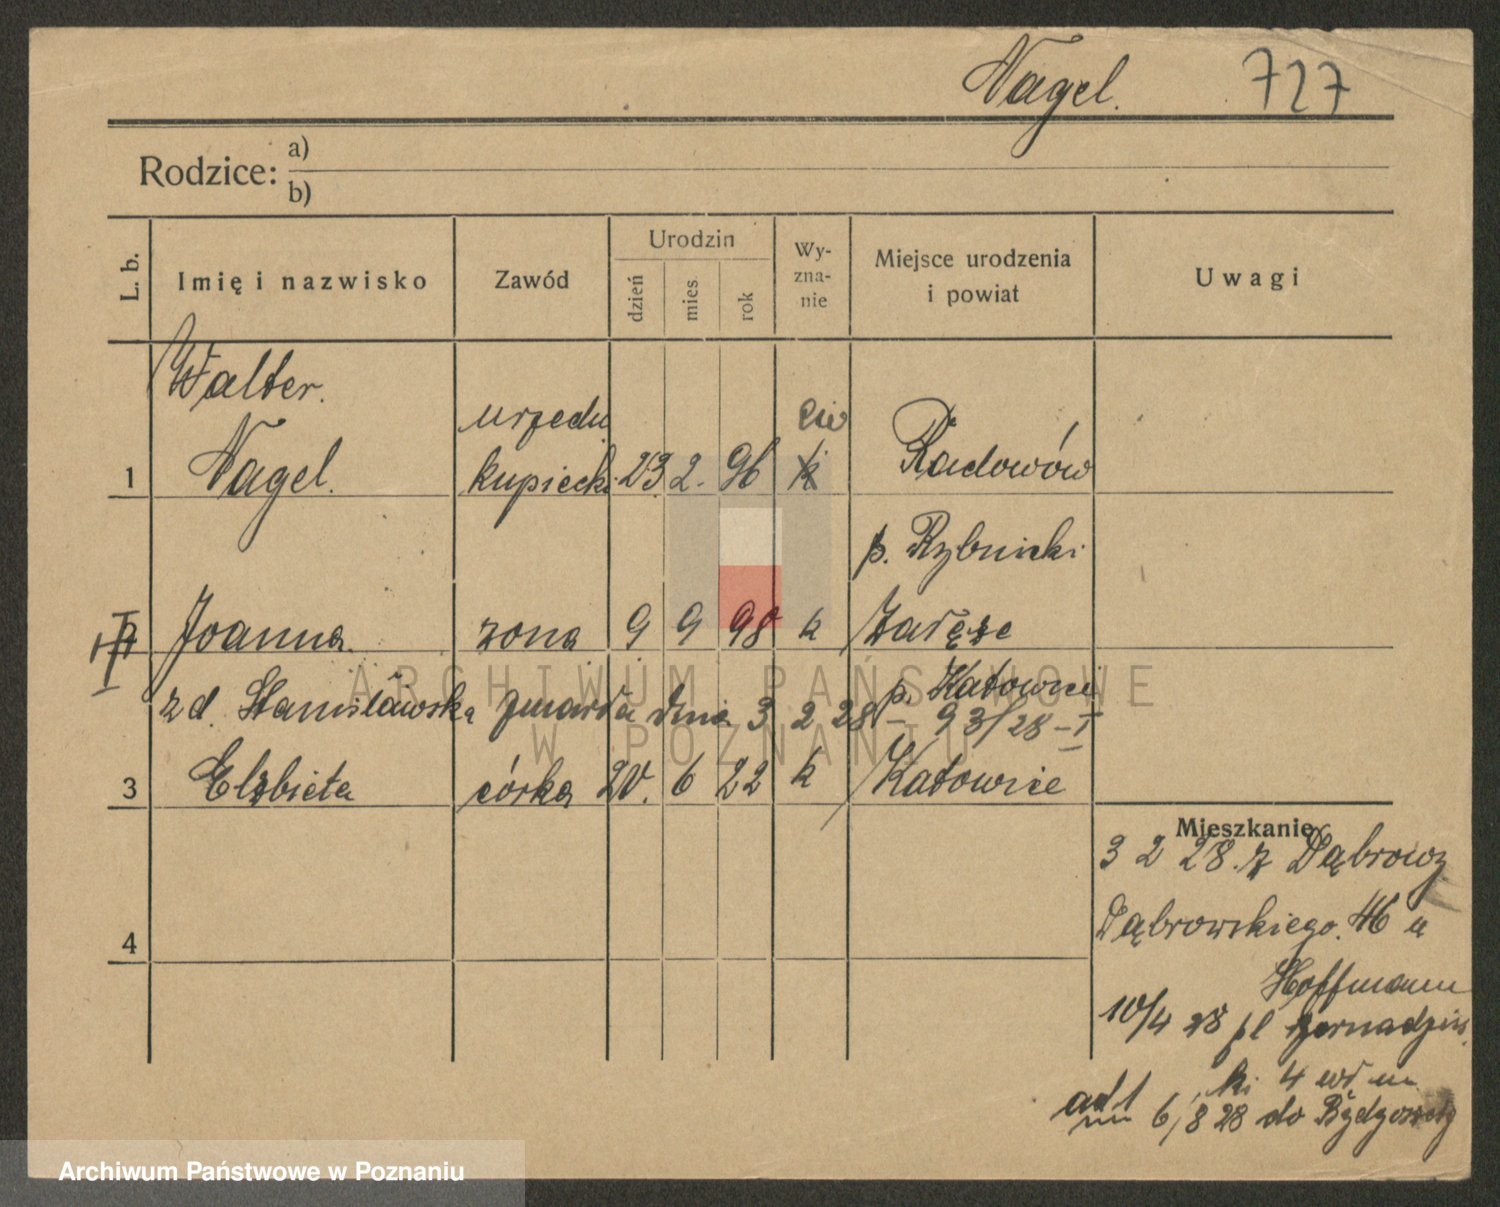 Nagel. 727
Rodzice: a)
b)
L. b. Imię i nazwisko Zawód Urodzin dzień mies. rok Wy-zna-nie Miejsce urodzenia i powiat Uwagi
Walter.
urzedn ew
1 Nagel. kupiecki 23. 2. 96 k Radowów
p. Rybnicki
2 Joanna żona 9 9 98 k Załęże
p. Katowice
zd. Stanisławska zmarła dnia 3 2 28 – 93/28 – I
3 Elżbieta córka 20. 6 22 k Katowice
4
Mieszkanie
3 2 28. z Dąbrowy
Dąbrowskiego. 46 u
Hoffmann
10/4 28 pl
ki 4 wł m
ad 1 6/8 28 do Bydgoszczy
ARCHIWUM PAŃSTWOWE
W POZNANIU
Archiwum Państwowe w Poznaniu